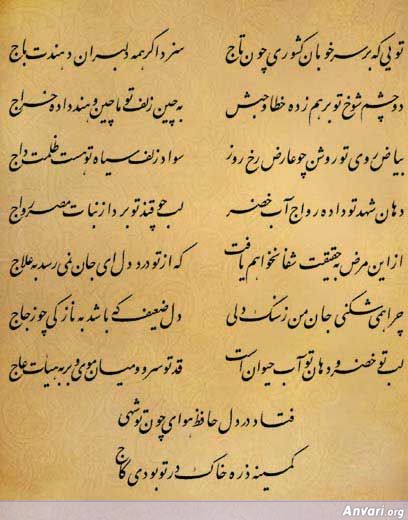 تویی که بر سر خوبان کشوری چون تاج سزد اگر همه دلبران دهندت باج
دو چشم شوخ تو برهم زده خطا و حبش به چین زلف تو ماچین و هند داده خراج
بیاض روی تو روشن چو عارض رخ روز سواد زلف سیاه تو هست ظلمت داج
دهان شهد تو داده رواج آب خضر لب چو قند تو برد از نبات مصر رواج
از این مرض به حقیقت شفا نخواهم یافت که از تو درد دل ای جان نمی رسد به علاج
چرا همی شکنی جان من ز سنگ دلی دل ضعیف که باشد به نازکی چو زجاج
لب تو خضر و دهان تو آب حیوان است قد تو سرو و میان موی و بر به هیات عاج
فتاد در دل حافظ هوای چون تو شهی
کمینه ذره خاک در تو بودی کاج
Anvari.org